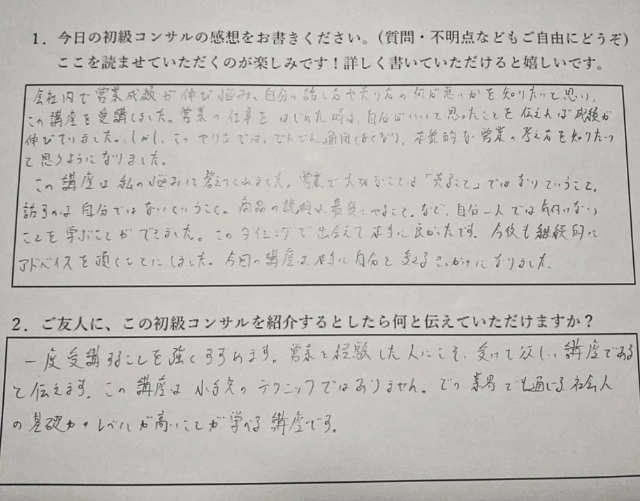 1．今日の初級コンサルの感想をお書きください。(質問・不明点などもご自由にどうぞ)
ここを読ませていただくのが楽しみです！詳しく書いていただけると嬉しいです。
会社内で営業成績が伸び悩み、自分の話し方や売り方の何が悪いかを知りたいと思い、
この講座を受講しました。営業の仕事をはじめた時は、自分がいいと思ったことを伝えれば成績が
伸びていました。しかし、このやり方では、どんどん通用しなくなり、本質的な営業の考え方を知りたい
と思うようになりました。
この講座は私の悩みに答えてくれました。営業で大切なことは「売ること」ではないということ。
話すのは自分ではないということ。商品の説明は最後にすること。など、自分一人では気付けない
ことを学ぶことができました。このタイミングで出会えて本当に良かったです。今後も継続的に
アドバイスを頂くことにしました。今回の講座は、本当に自分を変えるきっかけになりました。
2．ご友人に、この初級コンサルを紹介するとしたら何と伝えていただけますか？
一度受講することを強くすすめます。営業を経験した人にこそ、受けて欲しい講座である
と伝えます。この講座は小手先のテクニックではありません。どの業界でも通じる社会人
の基礎力のレベルが高いことが学べる講座です。